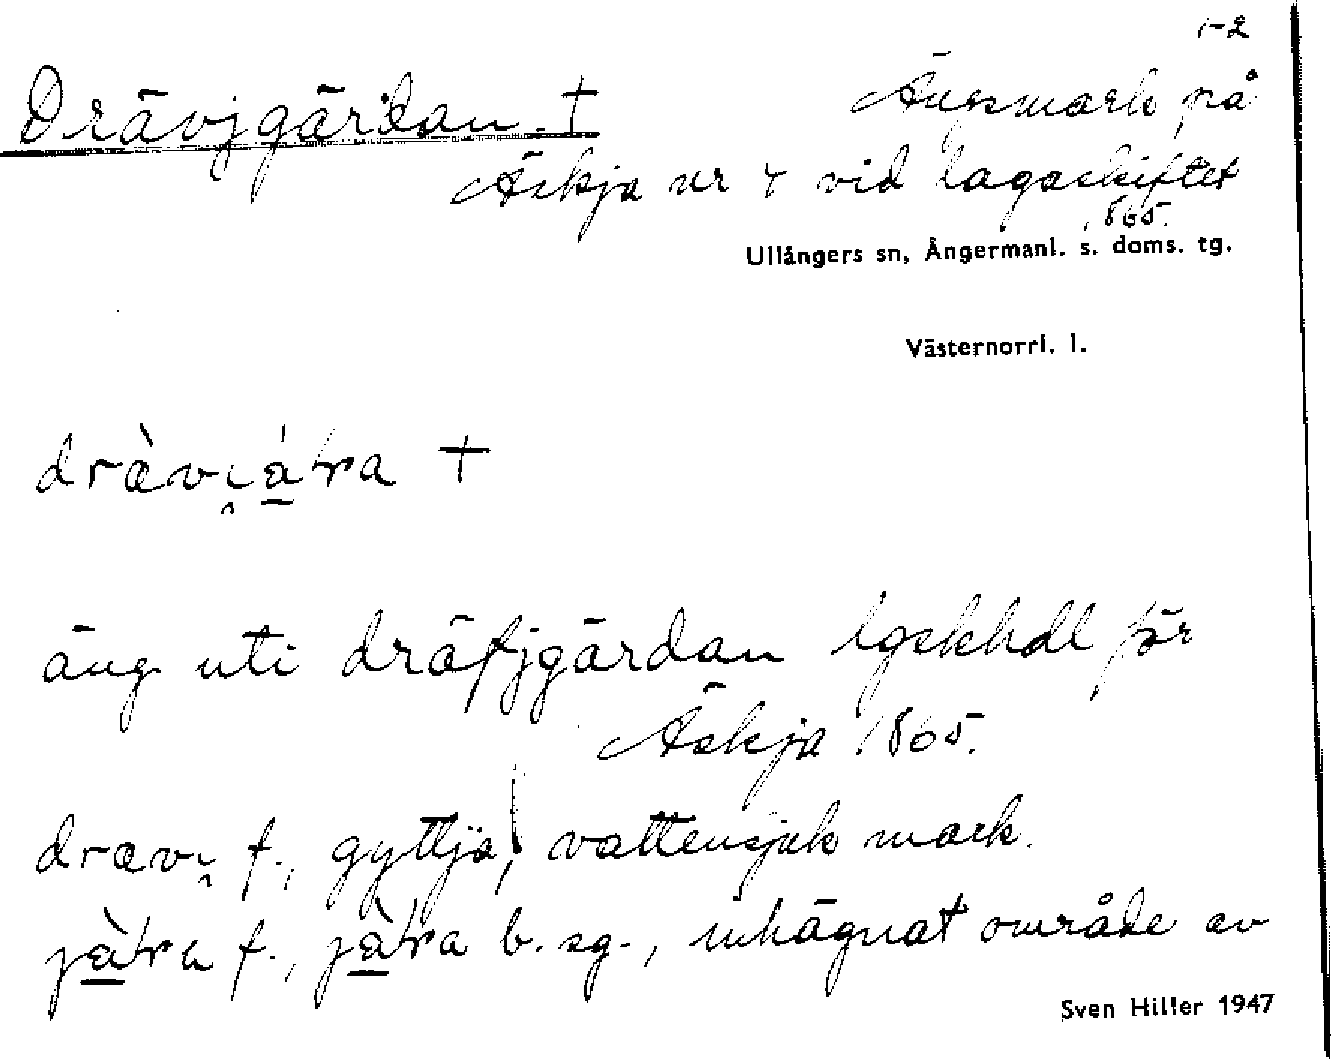 1-2
Drävjgärdan. †
Ängsmark på
Äskja nr 4 vid lagaskiftet
1865.
Ullångers sn, Ångermanl. s. doms. tg.
Västernorrl. l.
†
äng uti dräfjgärdan lgskhdl för
Äskja 1865.
drævi̯ f., gyttja, vattensjuk mark.
f., b. sg., inhägnat område av
Sven Hiller 1947